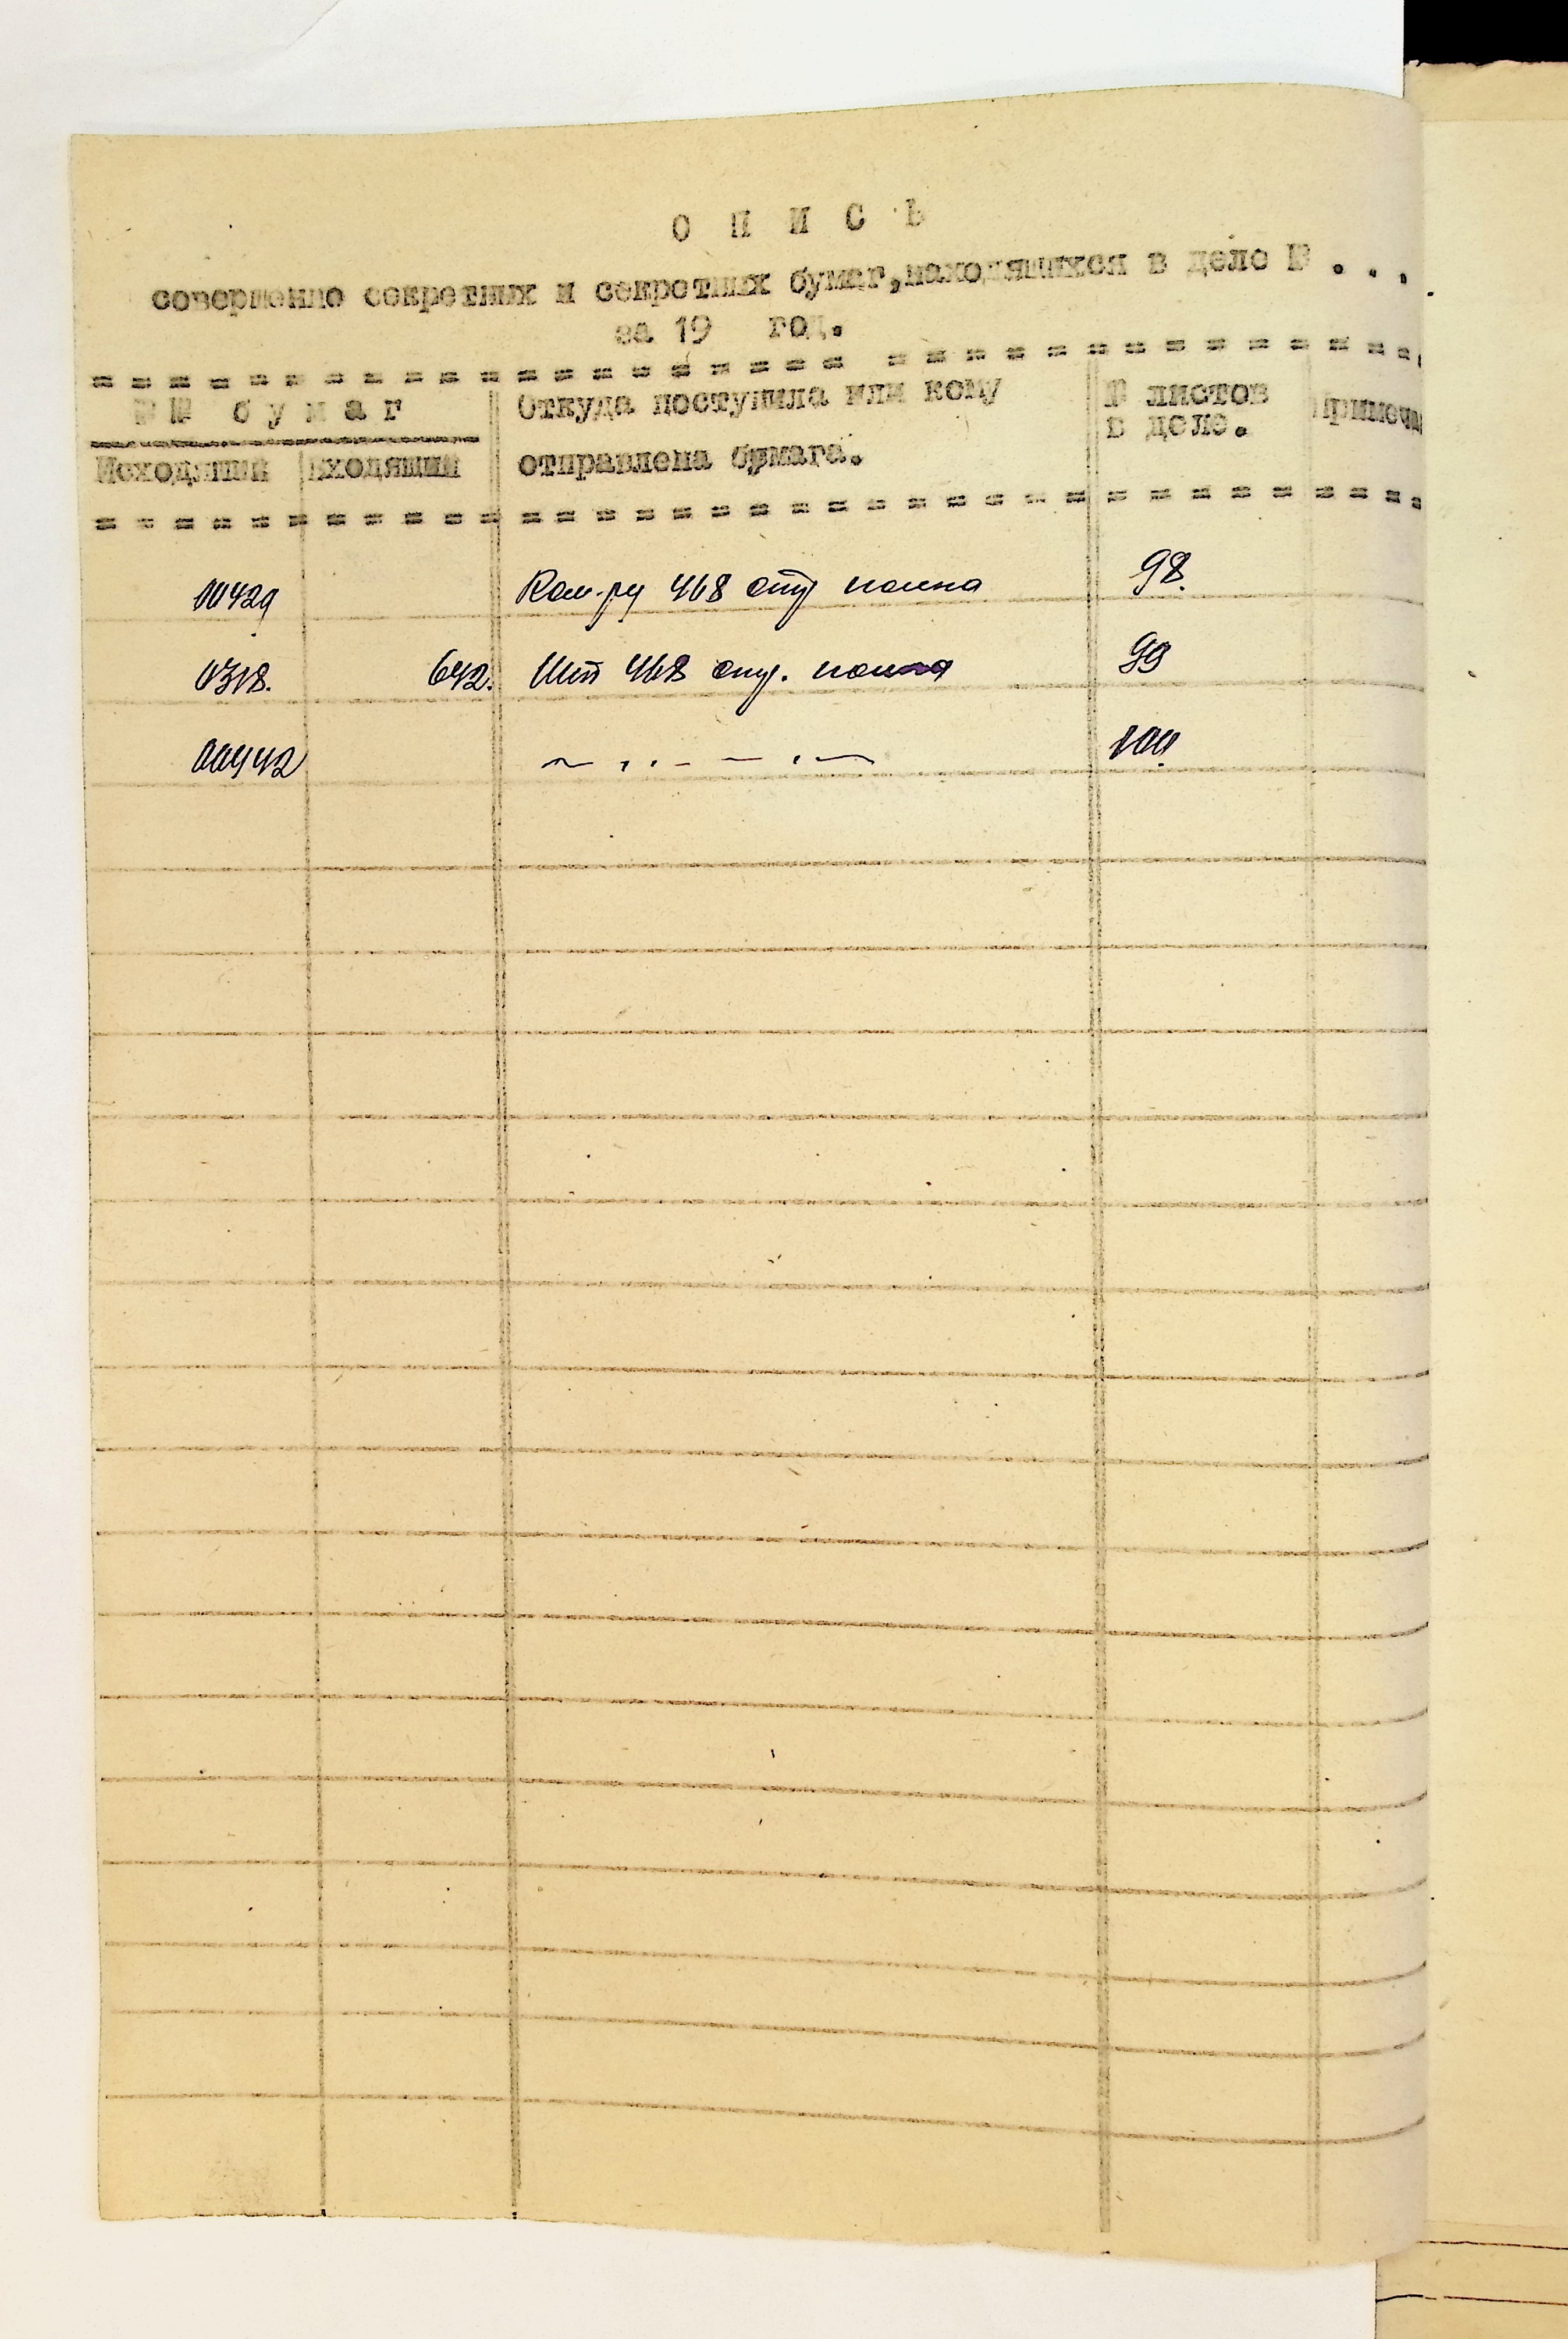 О П И С Ь
совершенно секретных и секретных бумаг, находящихся в деле № . . .
за 19 год.
№№ бумаг
Откуда поступила или кому
№ листов
Примеча
в деле.
Исходящий Входящий
отправлена бумага.
00429 Ком-ру 468 отд полка 98.
0318. 642. Шт 468 полка 99
00442 — „ — „ — 100.